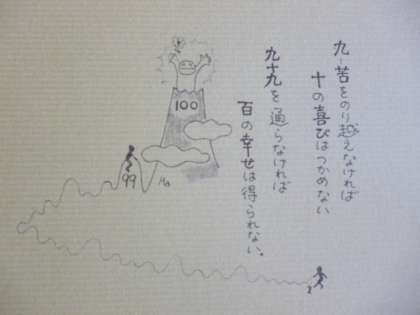 九-苦をのり越えなければ
十の喜びはつかめない
九十九を通らなければ
百の幸せは得られない。
100
99